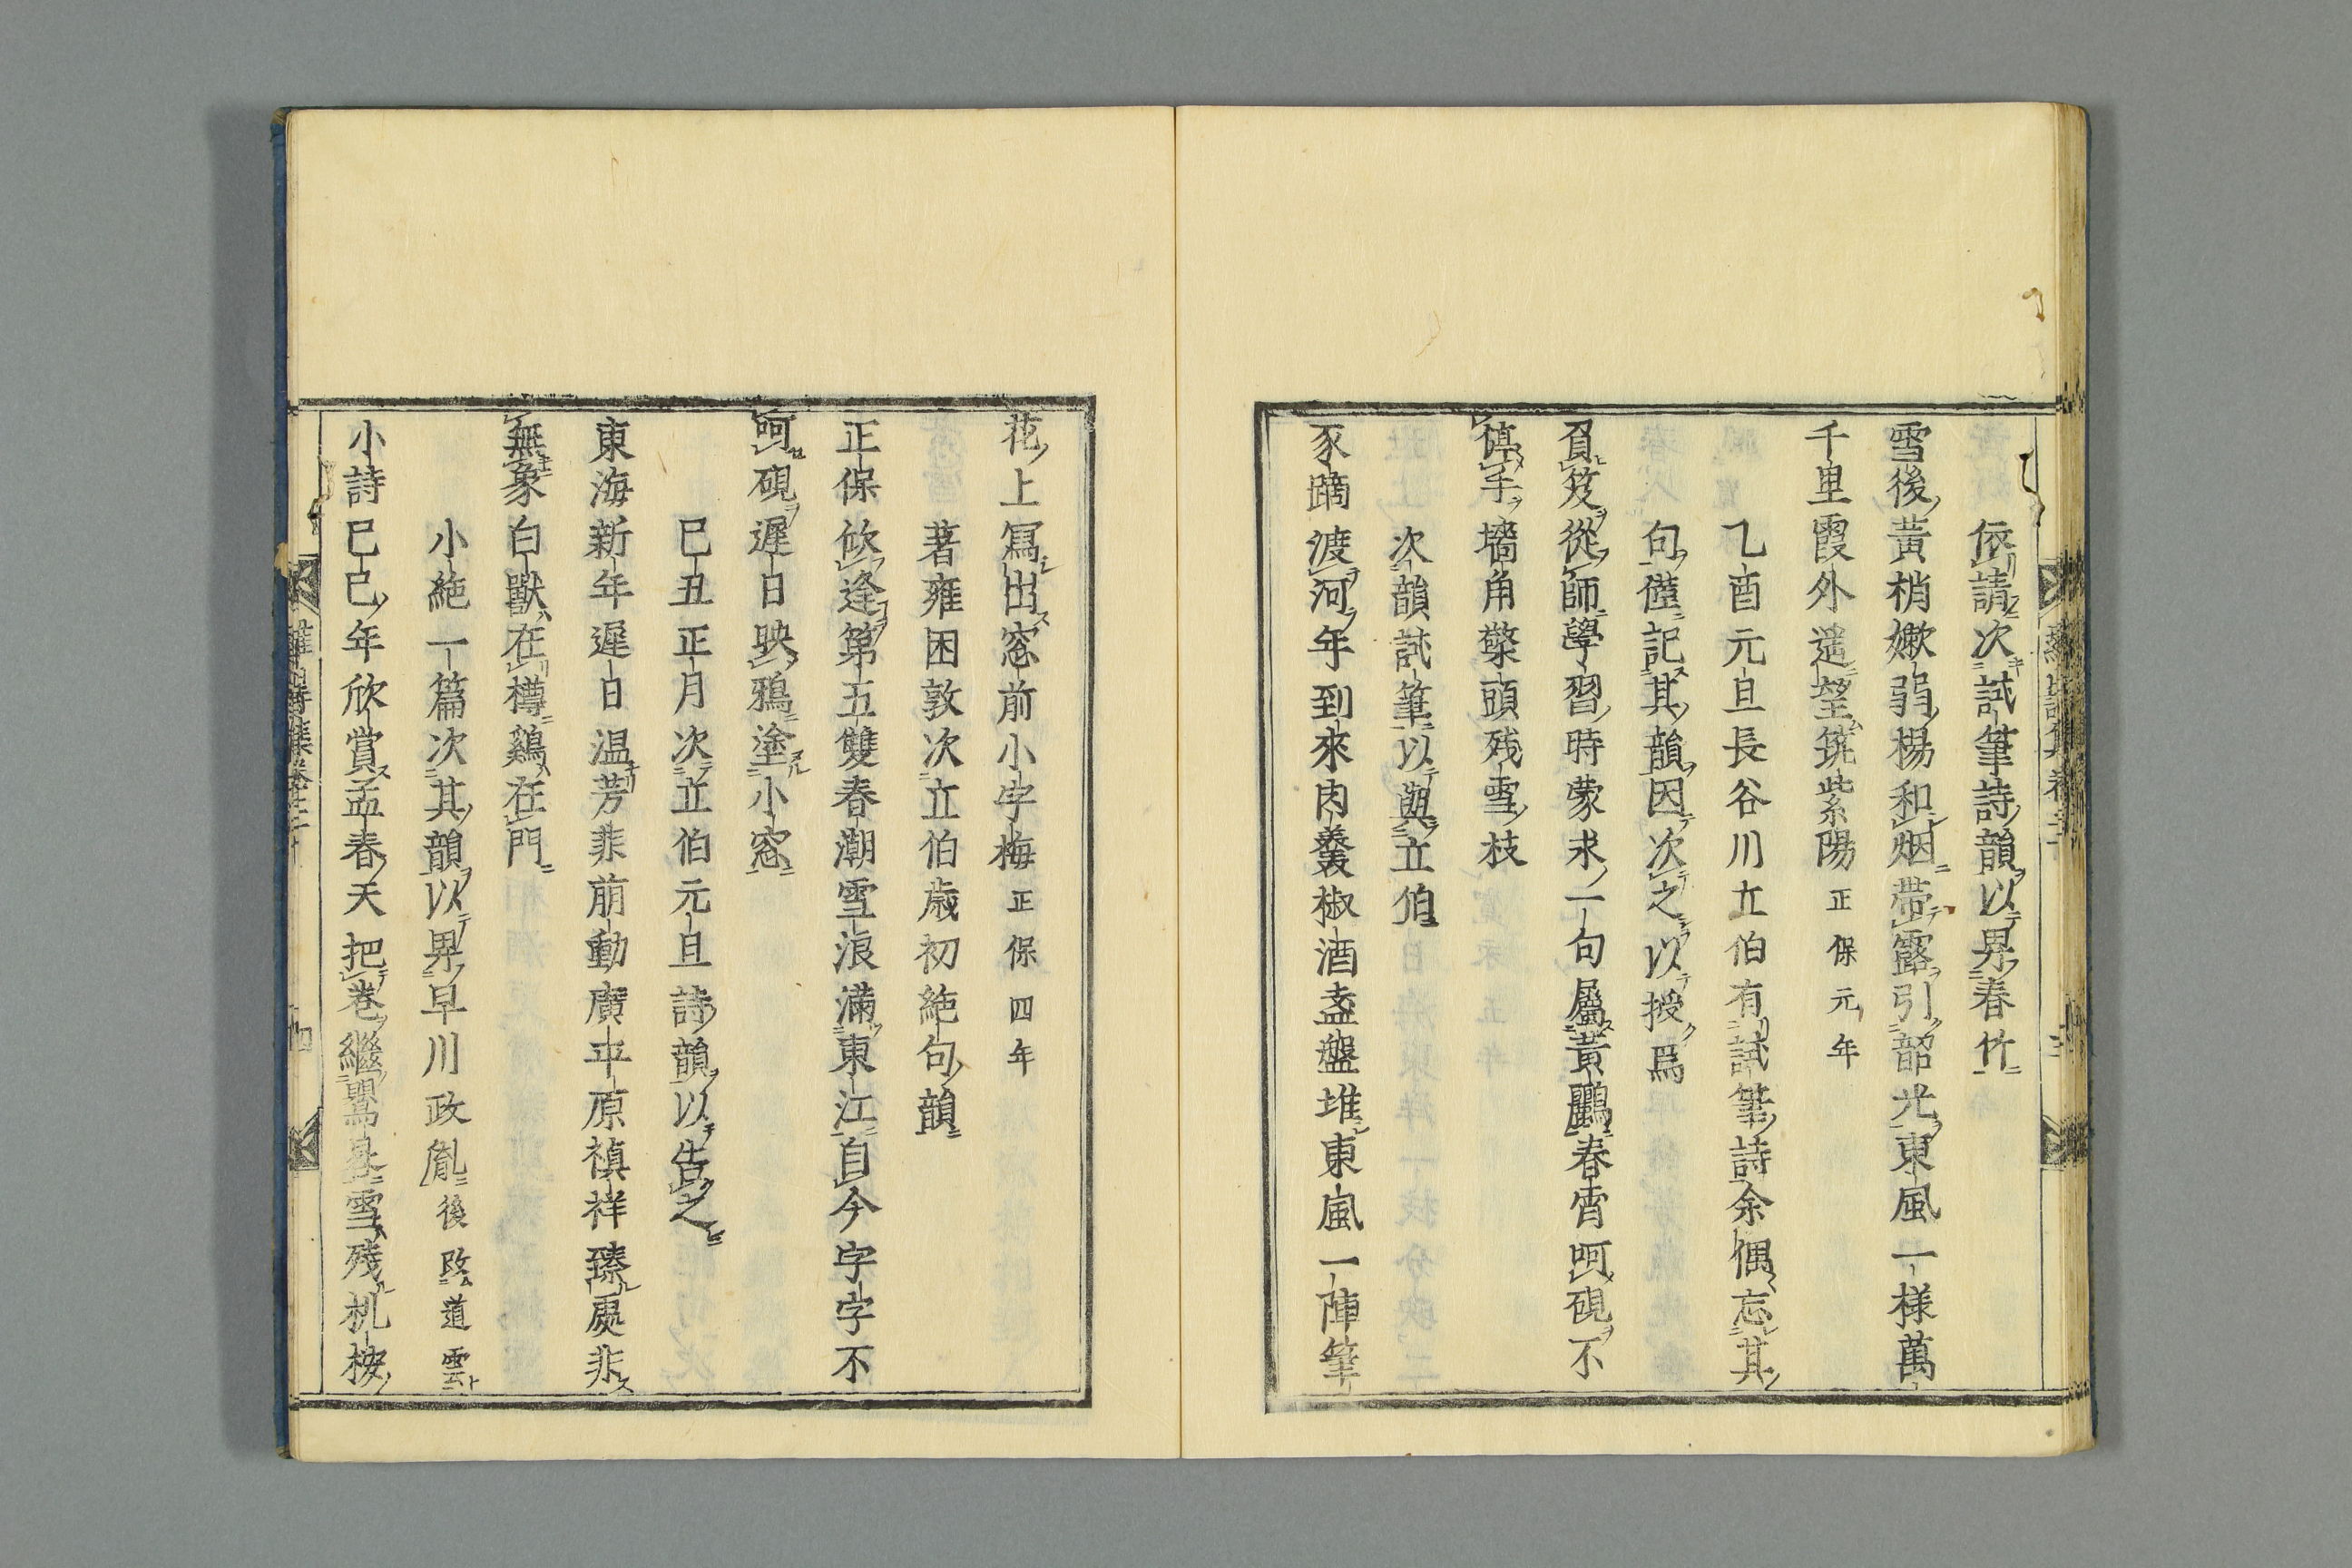 依請次試筆詩韻以畀春竹
雪後黃梢嫰弱楊和烟帶露引韶光東風一樣萬
千里霞外遥望筑紫陽正保元年
乙酉元旦長谷川立伯有試筆詩余偶忘其
句僅記其韻因次之以授焉
負笈從師學習時蒙求一句屬黃鸝春宵呵硯不
停手墻角檠頭残雪枝
次韻試筆以與立伯
豕蹢渡河年到來肉羹椒酒盍盤堆東風一陣筆
花上冩出窓前小字梅正保四年
著雍困敦次立伯歳初絶句韻
正保欣逢第五雙春潮雪浪滿東江自今字字不
呵硯遲日映鴉塗小窓
巳丑正月次立伯元旦詩韻以告之
東海新年遲日温芳菲萠動廣平原禎祥臻處非
無象白獸在樽鷄在門
小絶一篇次其韻以畀早川政胤後改道雲
小詩巳巳年欣賞孟春天把巻繼晷雪残机按